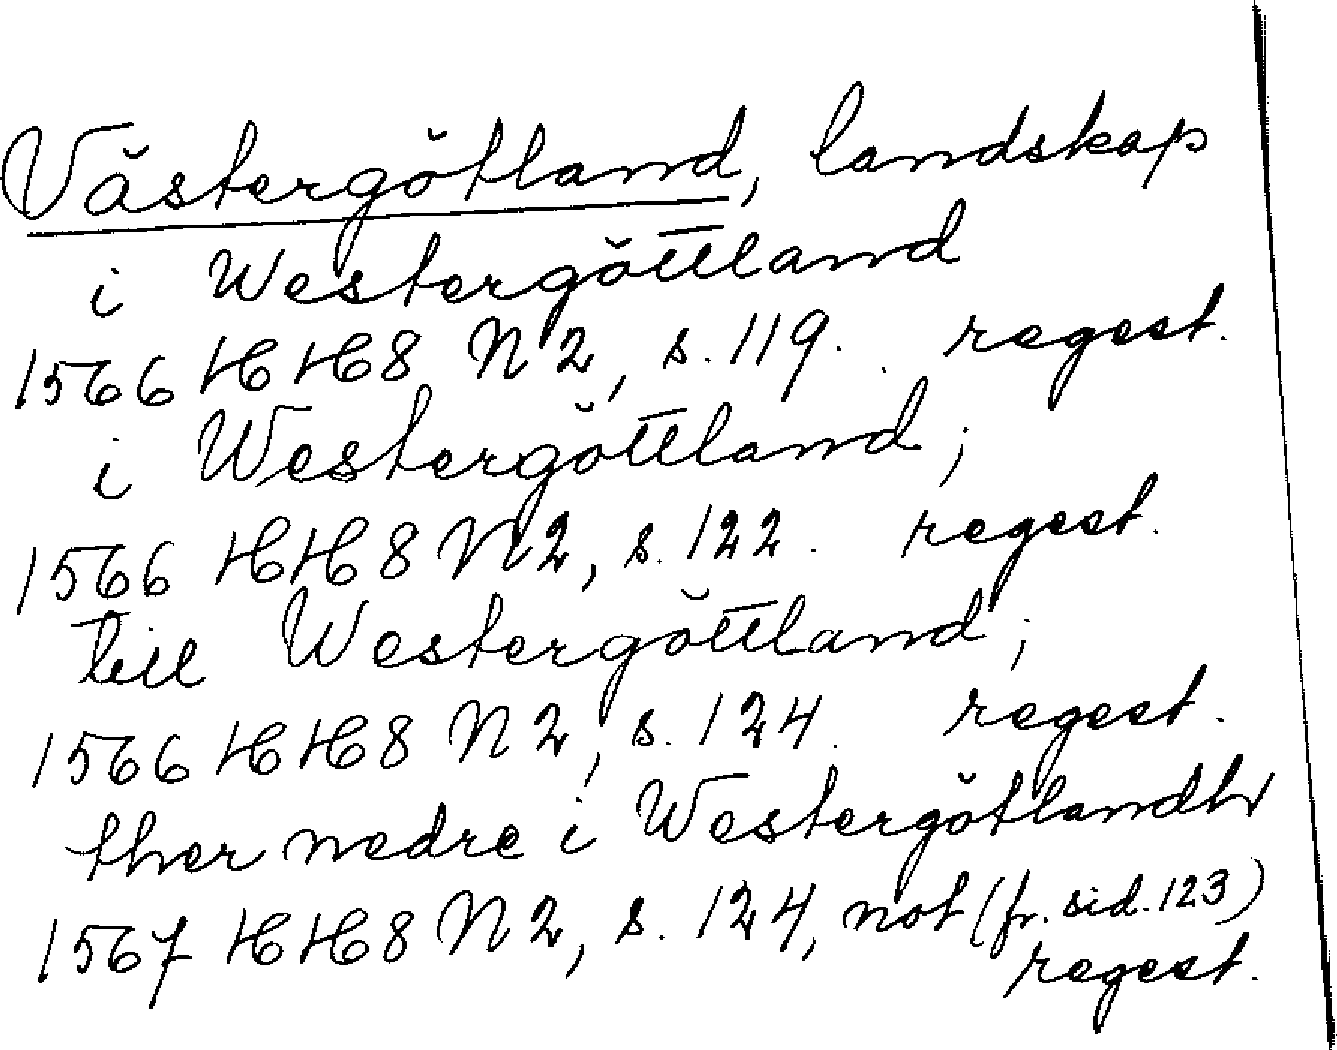 Västergötland, landskap
i Westergöttland
1566 HH8 N2, s. 119. regest.
i Westergöttland;
1566 HH8 N2, s. 122. regest.
till Westergöttland;
1566 HH8 N2, s. 124. regest.
ther nedre i Westergötlandh
1567 HH8 N2, s. 124, not (fr. sid. 123)
regest.